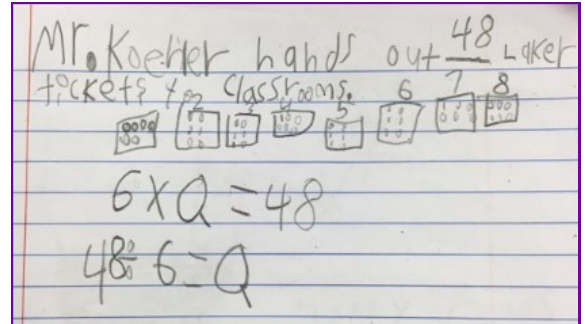 Mr. Koerner hands out 48 Laker
tickets to classrooms.
2 3 4 5 6 7 8
6 X Q = 48
48 ÷ 6 = Q